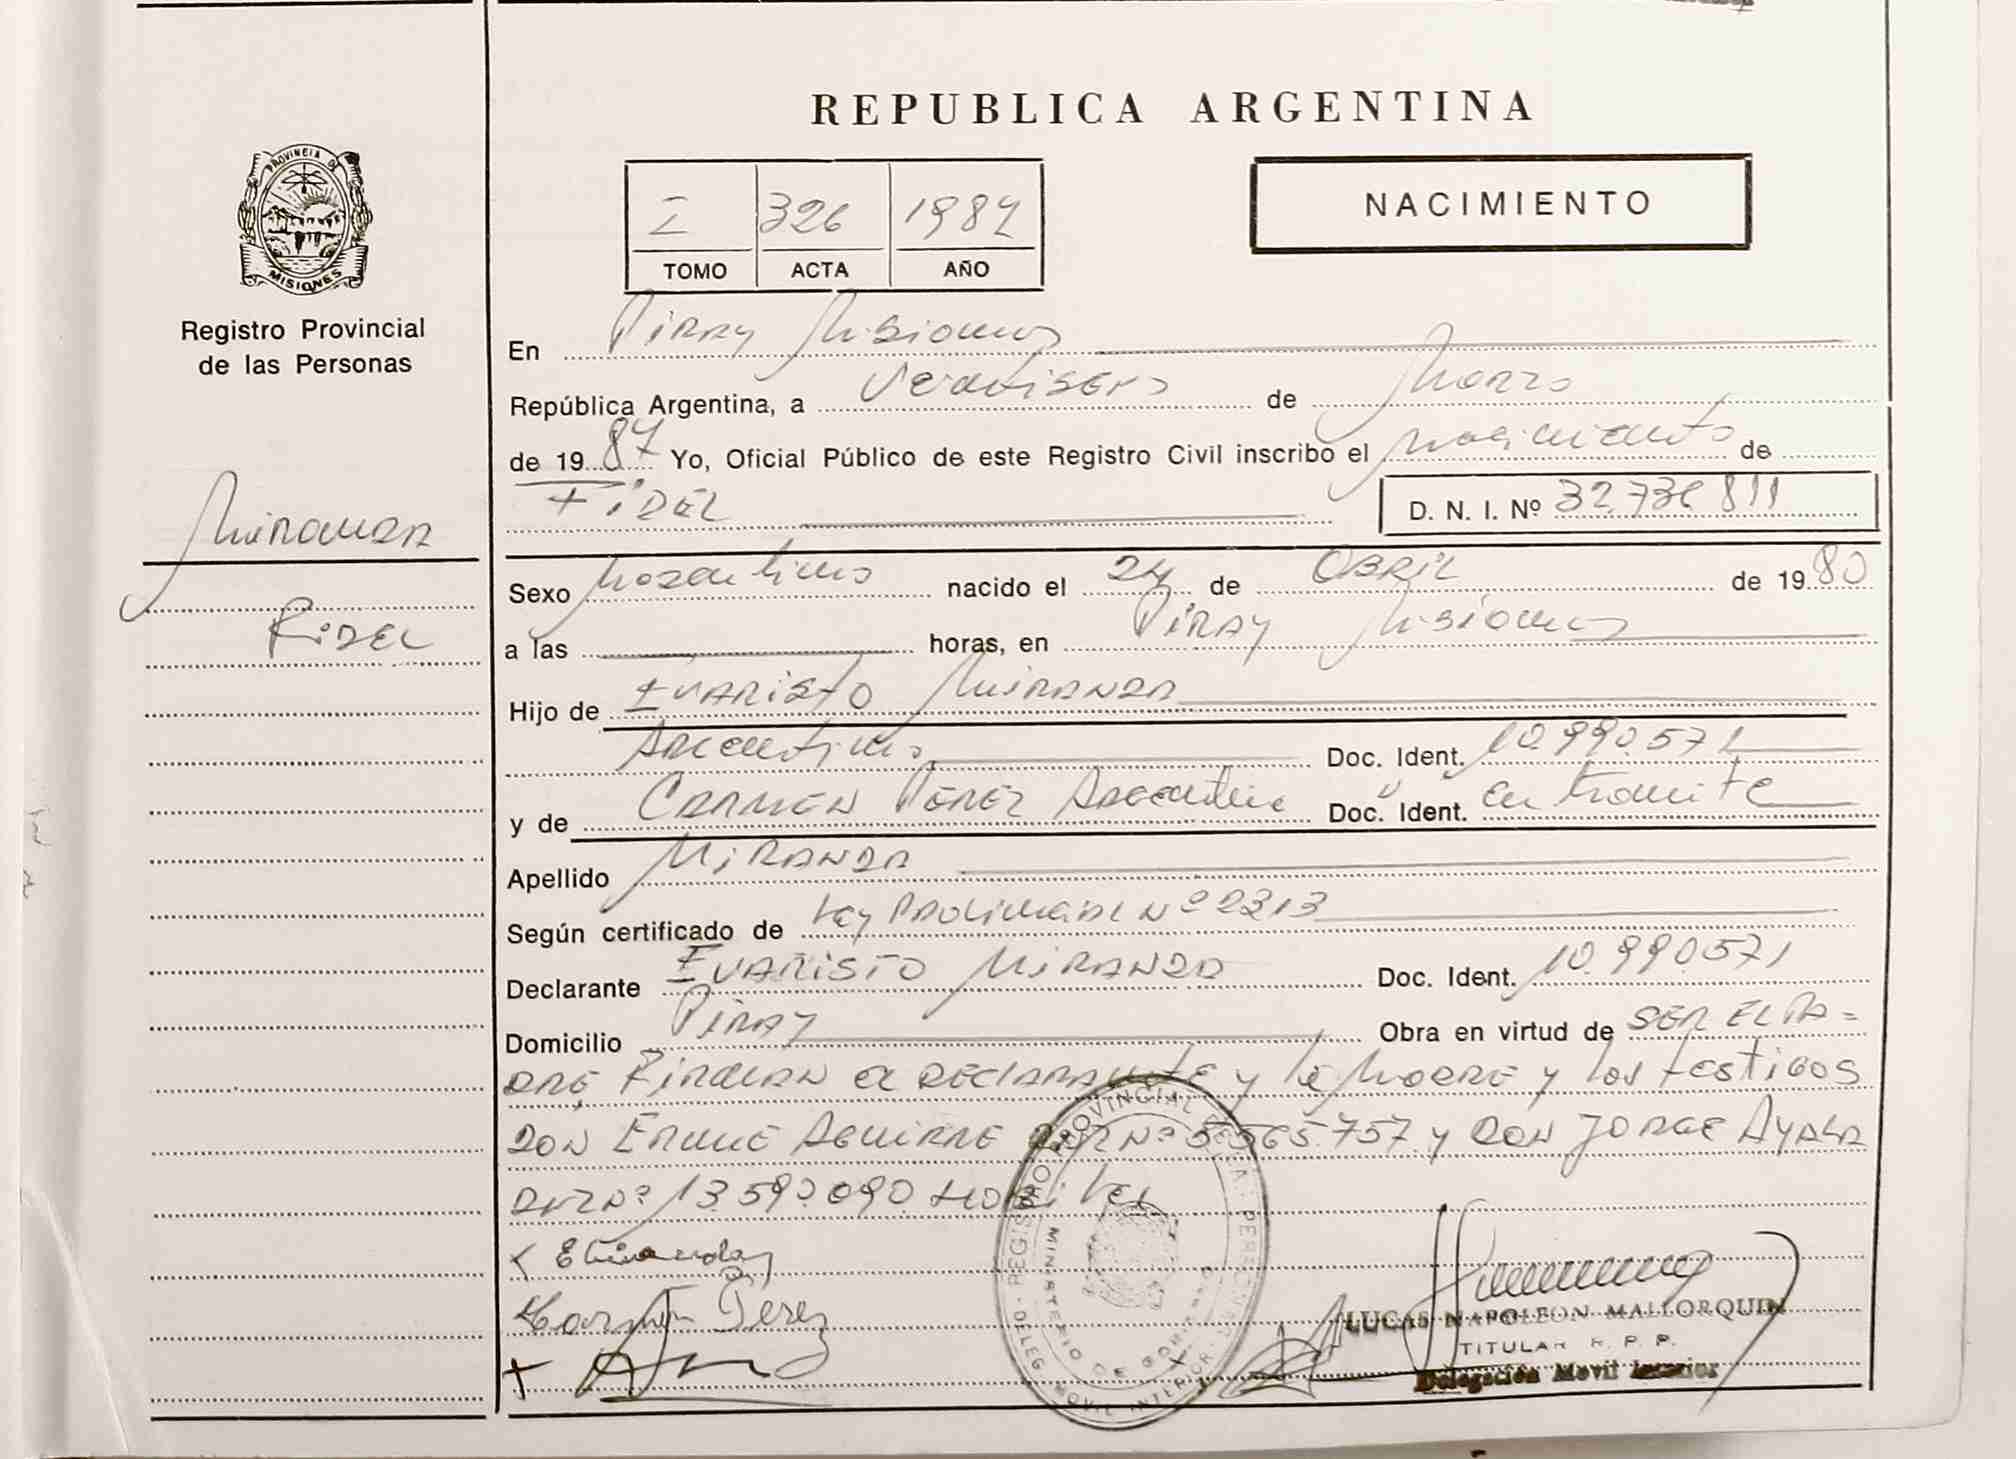 REPUBLICA ARGENTINA
PROVINCIA DE
MISIONES
Registro Provincial
de las Personas
I 326 1987
TOMO ACTA AÑO
NACIMIENTO
En Piray Misiones
República Argentina, a veintiseis de Marzo
de 1987 Yo, Oficial Público de este Registro Civil inscribo el nacimiento de
Fidel
D. N. I. Nº 32.736 811
Miranda
Fidel
Sexo Masculino nacido el 24 de Abril de 1980
a las horas, en Piray Misiones
Hijo de Evaristo Miranda
Argentino Doc. Ident. 10.990.571
y de Carmen Perez Argentina Doc. Ident. en tramite
Apellido Miranda
Según certificado de Ley Provincial Nº 2313
Declarante Evaristo Miranda Doc. Ident. 10.990571
Domicilio Piray Obra en virtud de ser el pa=
dre, Firman el declarante y la Madre y los testigos
Don Aguirre Nº 5.565.757 y Don Jorge Ayala
Nº 13.590.090
EMiranda
Carmen Perez
REGISTRO PROVINCIAL DE LAS PERSONAS
MINISTERIO DE GOBIERNO
DELEG. MOVIL INTERIOR
LUCAS NAPOLEON MALLORQUIN
TITULAR R. P. P.
Delegación Movil Interior